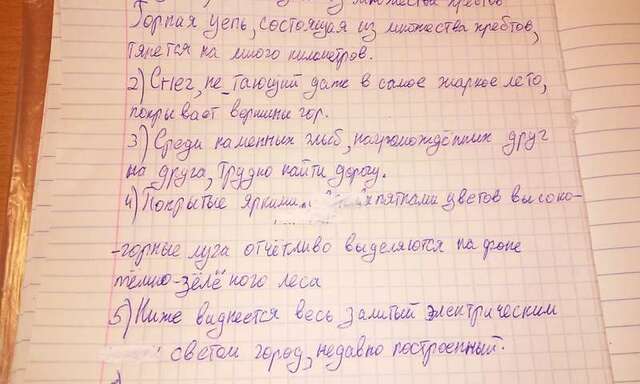 множества хребтов
Горная цепь, состоящая из множества хребтов,
тянется на много километров.
2) Снег, не тающий даже в самое жаркое лето,
покрывает вершины гор.
3) Среди каменных глыб, нагромождённых друг
на друга, трудно найти дорогу.
4) Покрытые яркими пятнами цветов высоко-
-горные луга отчётливо выделяются на фоне
тёмно-зелёного леса
5) Ниже виднеется весь залитый электрическим
светом город, недавно построенный.